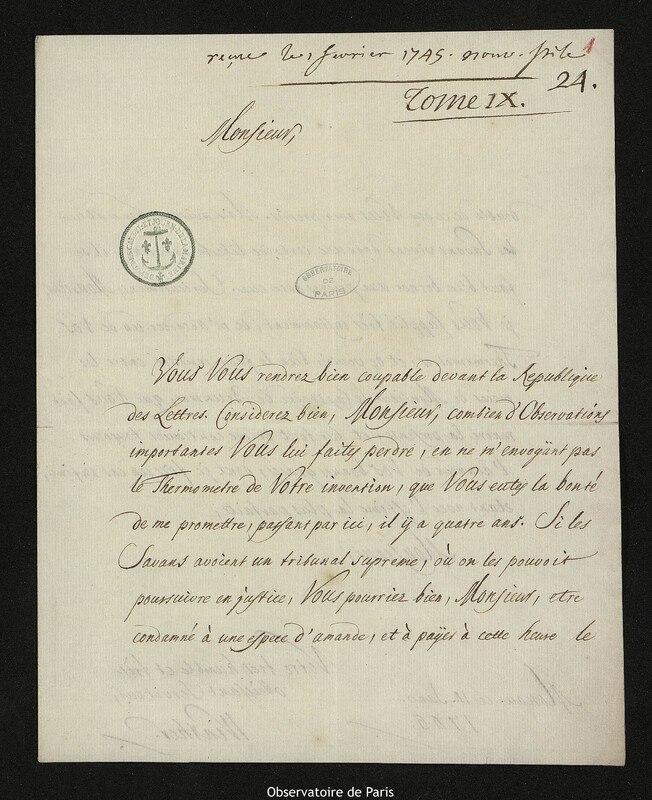 reçue le 1 fevrier 1745. nouv. stile
1
24.
Tome IX.
Monsieur,
OBSERVATOIRE
DE
PARIS
Vous Vous rendrez bien coupable devant la Republique
des Lettres. Considerez bien, Monsieur, combien d'Observations
importantes Vous lui faites perdre, en ne m'envoyant pas
le Thermometre de Votre invention, que Vous eutes la bonté
de me promettre, passant par ici, il ÿ a quatre ans. Si les
Savans avoient un tribunal supreme, où on les pouvoit
poursuivre en justice, Vous pourriez bien, Monsieur, etre
condamné à une espece d'amande, et à paÿer à cette heure le
Observatoire de Paris